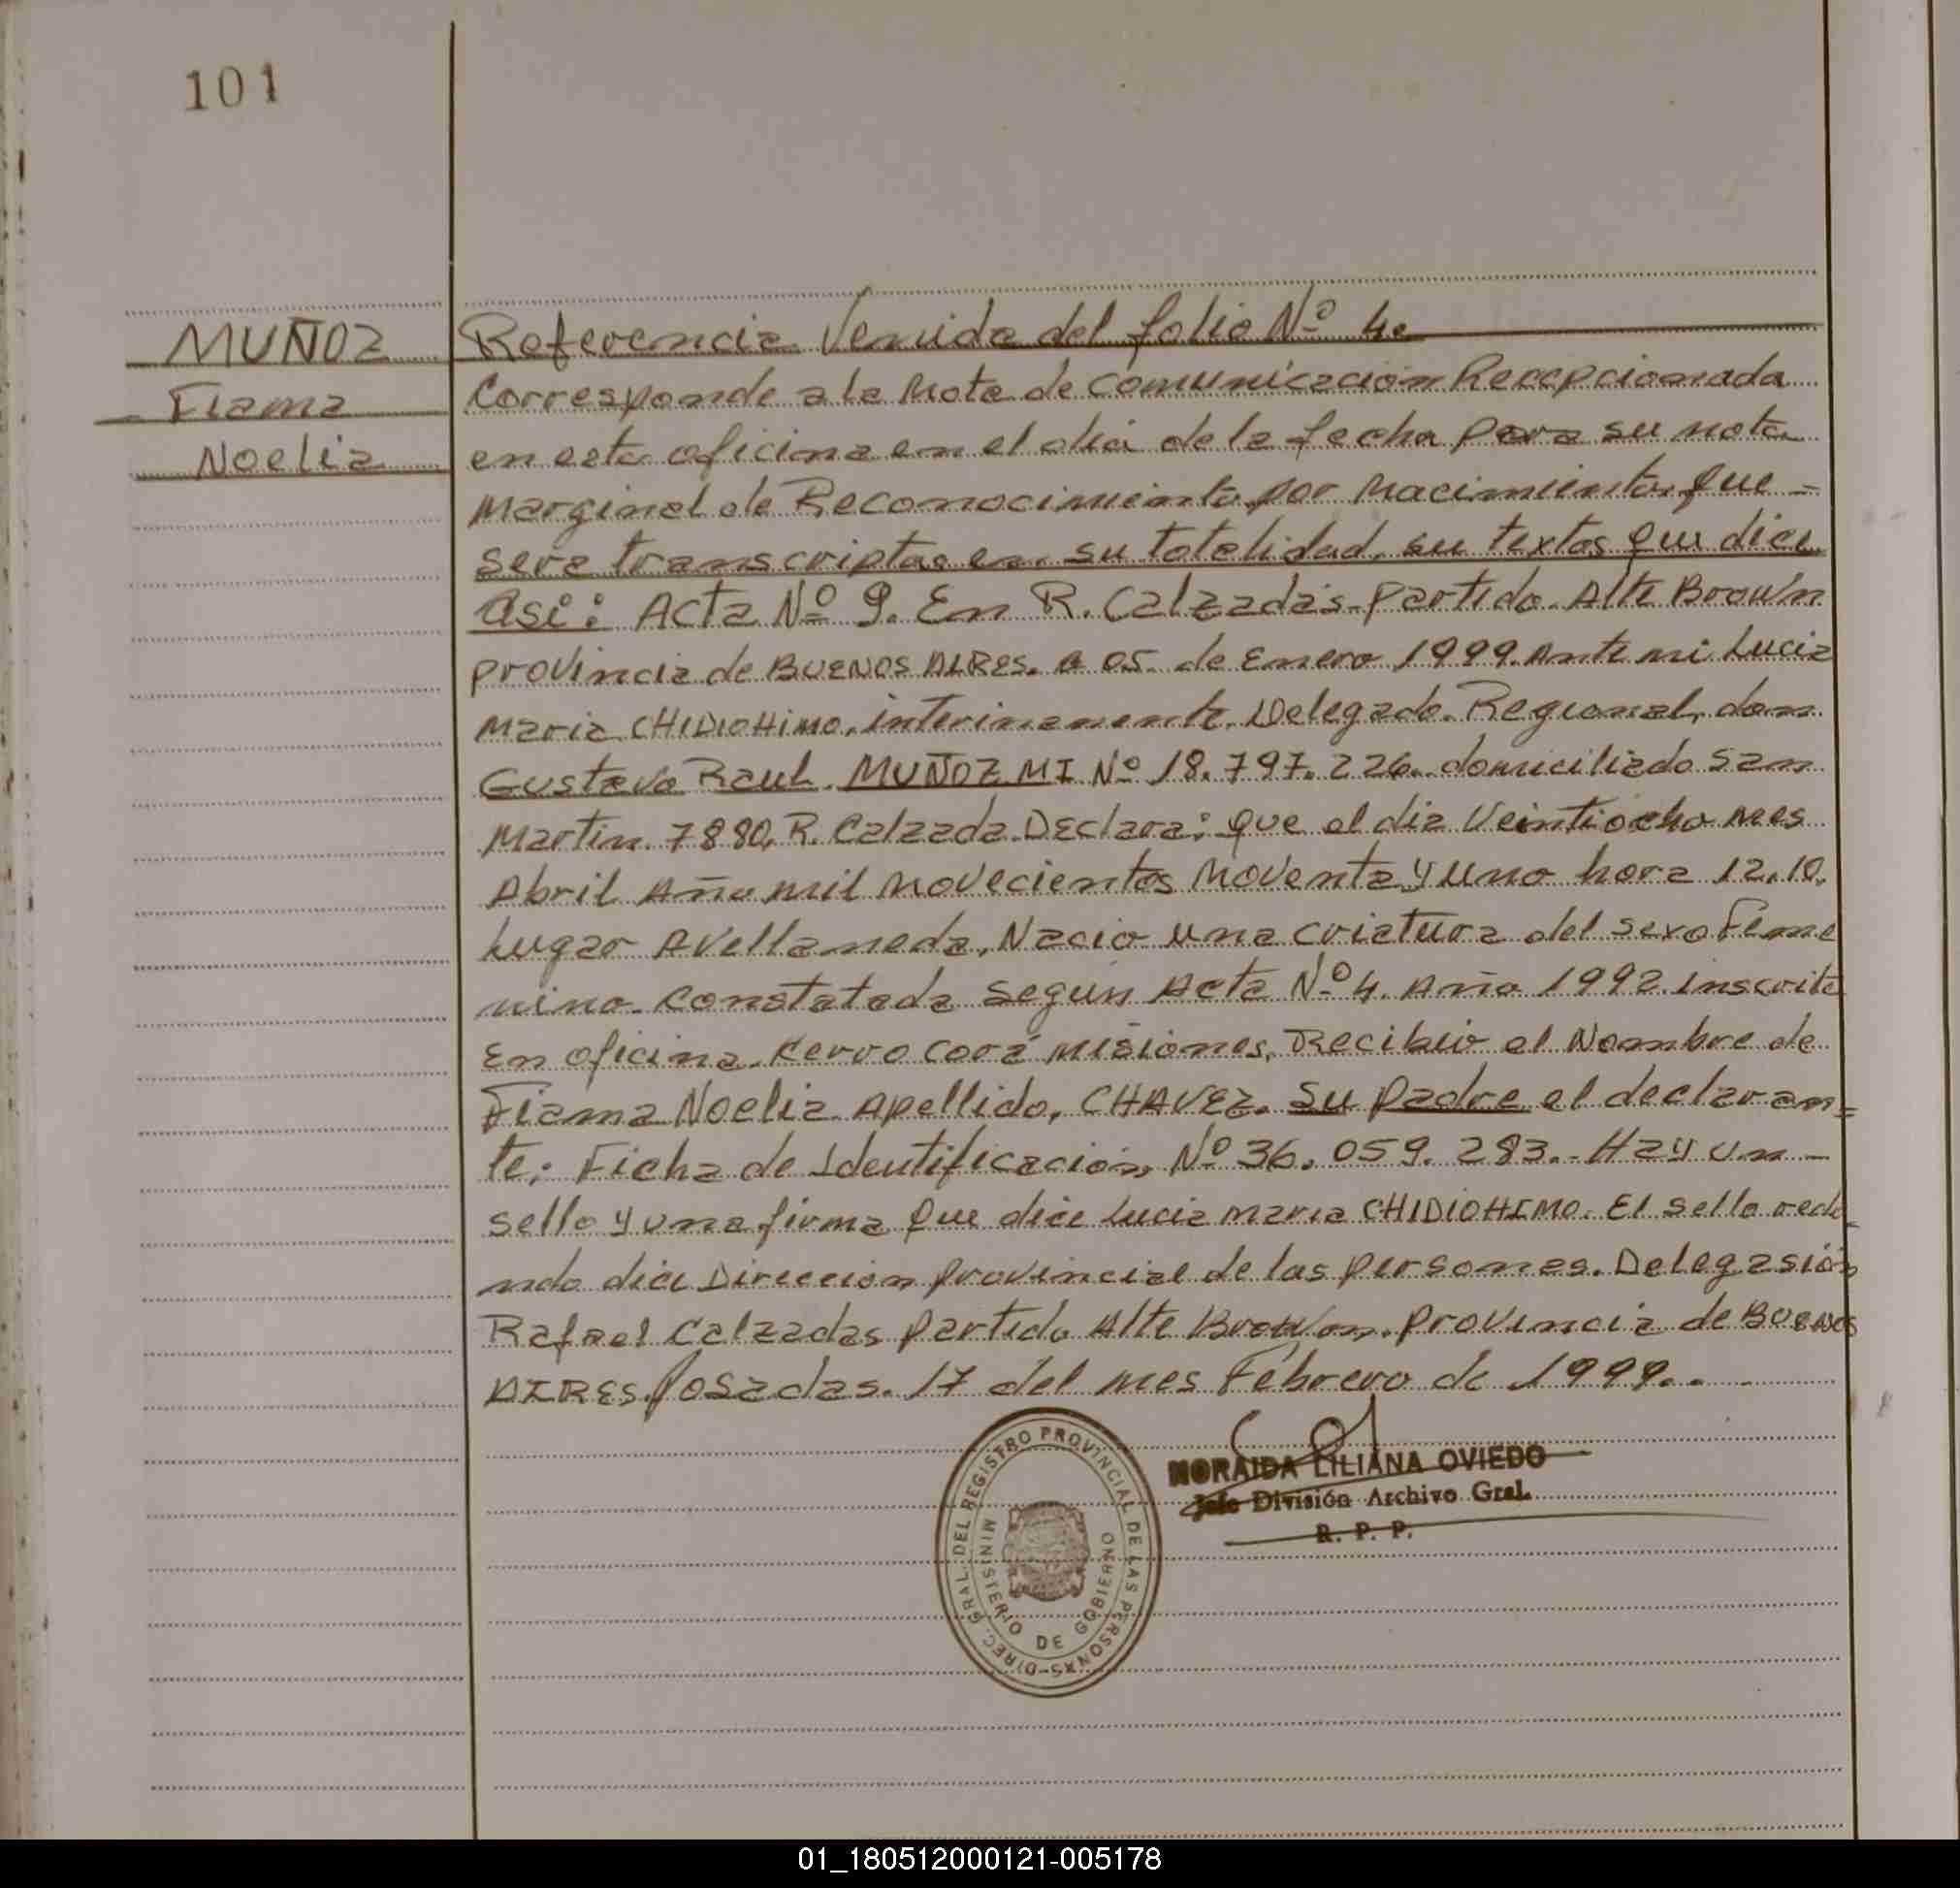 101
MUÑOZ
Fiama
Noelia
Referencia Venida del folio Nº 4.
Corresponde a la Nota de comunicación Recepcionada
en esta oficina en el día de la fecha para su nota
marginal de Reconocimiento por Nacimiento, que -
será transcriptas en su totalidad, su textos que dice
así: Acta Nº 9. En R. Calzadas Partido Alte Brown
provincia de BUENOS AIRES. a 05 de Enero 1999. Ante mi Lucia
Maria CHIDICHIMO, interinamente Delegado Regional, don
Gustavo Raul MUÑOZ MI Nº 18.797.226. domiciliado San
Martin 7880, R. Calzada Declara: que el dia Veintiocho mes
Abril Año mil novecientos Noventa y uno hora 12,10,
Lugar Avellaneda, Nacio una criatura del sexo Feme
nino. Constatada segun Acta Nº 4. Año 1992 inscrita
En oficina Cerro Corá Misiones, Recibio el Nombre de
Fiama Noelia Apellido, CHAVEZ. Su padre el declaran=
te: Ficha de Identificacion, Nº 36.059.283.- Hay un -
sello y una firma que dice Lucia Maria CHIDICHIMO. El sello redo
ndo dice Direccion provincial de las personas. Delegasión
Rafael Calzadas Partido Alte Brown. Provincia de BUENOS
AIRES. Posadas. 17 del mes Febrero de 1999..
DIREC. GRAL. DEL REGISTRO PROVINCIAL DE LAS PERSONAS-
MINISTERIO DE GOBIERNO
NORAIDA LILIANA OVIEDO
Jefe División Archivo Gral.
R. P. P.
01_180512000121-005178